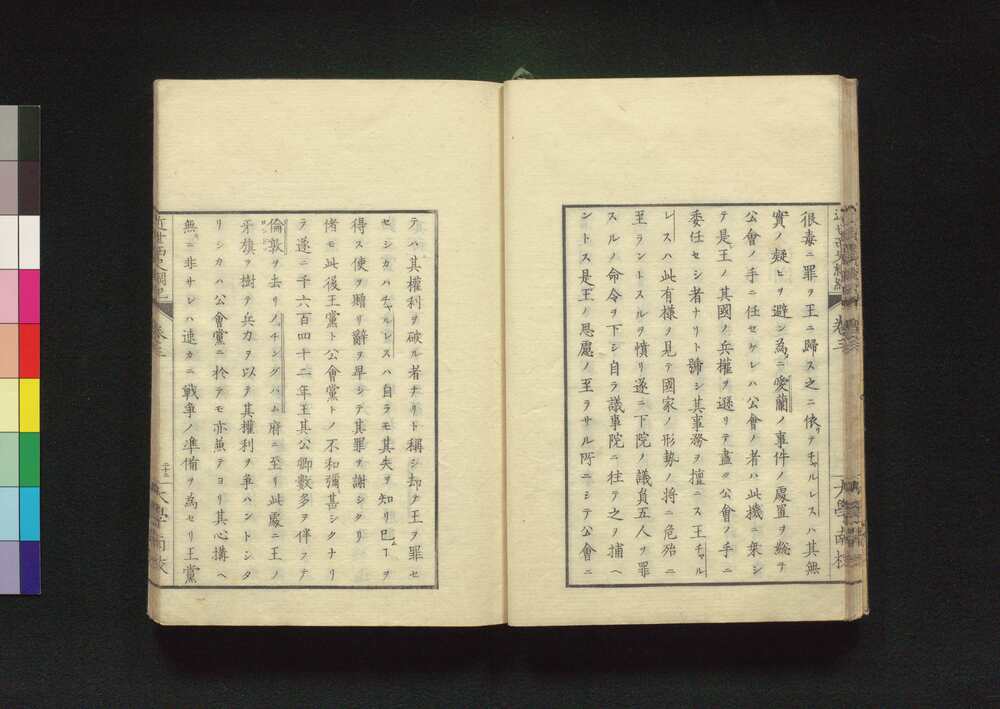 很毒ニ罪ヲ王ニ歸ス之ニ依リテチャルレスハ其無
實ノ疑ヒヲ避ン為ニ愛蘭ノ事件ノ處置ヲ総テ
公會ノ手ニ任セケレハ公會ノ者ハ此機ニ乗シ
テ是王ノ其國ノ兵權ヲ遜リテ盡ク公會ノ手ニ
委任セシ者ナリト號シ其事務ヲ擅ニス王チャル
レスハ此有様ヲ見テ國家ノ形勢ノ將ニ危殆ニ
至ラントスルヲ憤リ遂ニ下院ノ議員五人ヲ罪
スルノ命令ヲ下シ自ラ議事院ニ往テ之ヲ捕ヘ
ントス是王ノ思慮ノ至ラサル所ニシテ公會ニ
テハ其權利ヲ破ル者ナリト稱シ却テ王ヲ罪セ
セシカハチャルレスハ自ラモ其失ヲ知リ巳ムヿヲ
得ス使ヲ贈リ辭ヲ卑シテ其罪ヲ謝シタリ
偖モ此後王黨ト公會黨トノ不和彌甚シクナリ
テ遂ニ千六百四十二年王其公卿數多ヲ伴フテ
倫敦ヲ去リノチングハム府ニ至リ此處ニ王ノ
牙旗ヲ樹テ兵力ヲ以テ其權利ヲ爭ハントシタ
リシカハ公會黨ニ於テモ亦兼テヨリ其心搆ヘ
無ニ非サレハ速カニ戦爭ノ準備ヲ為セリ王黨
近世西史綱紀
卷三